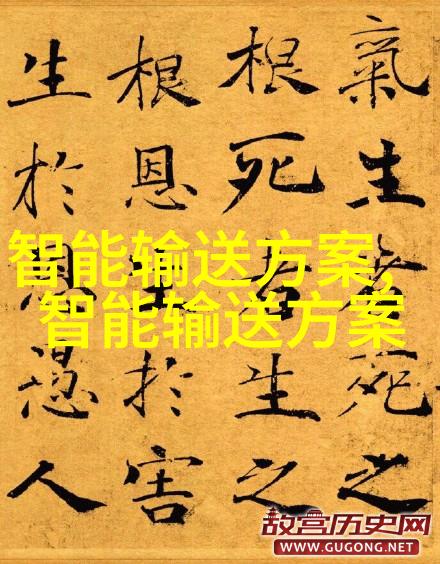 氣生者死之
根死者生之
根恩生於害
生於恩愚人
智能输送方案,
智能输送方案
故宫历史网
WWW.GUGONG.NET